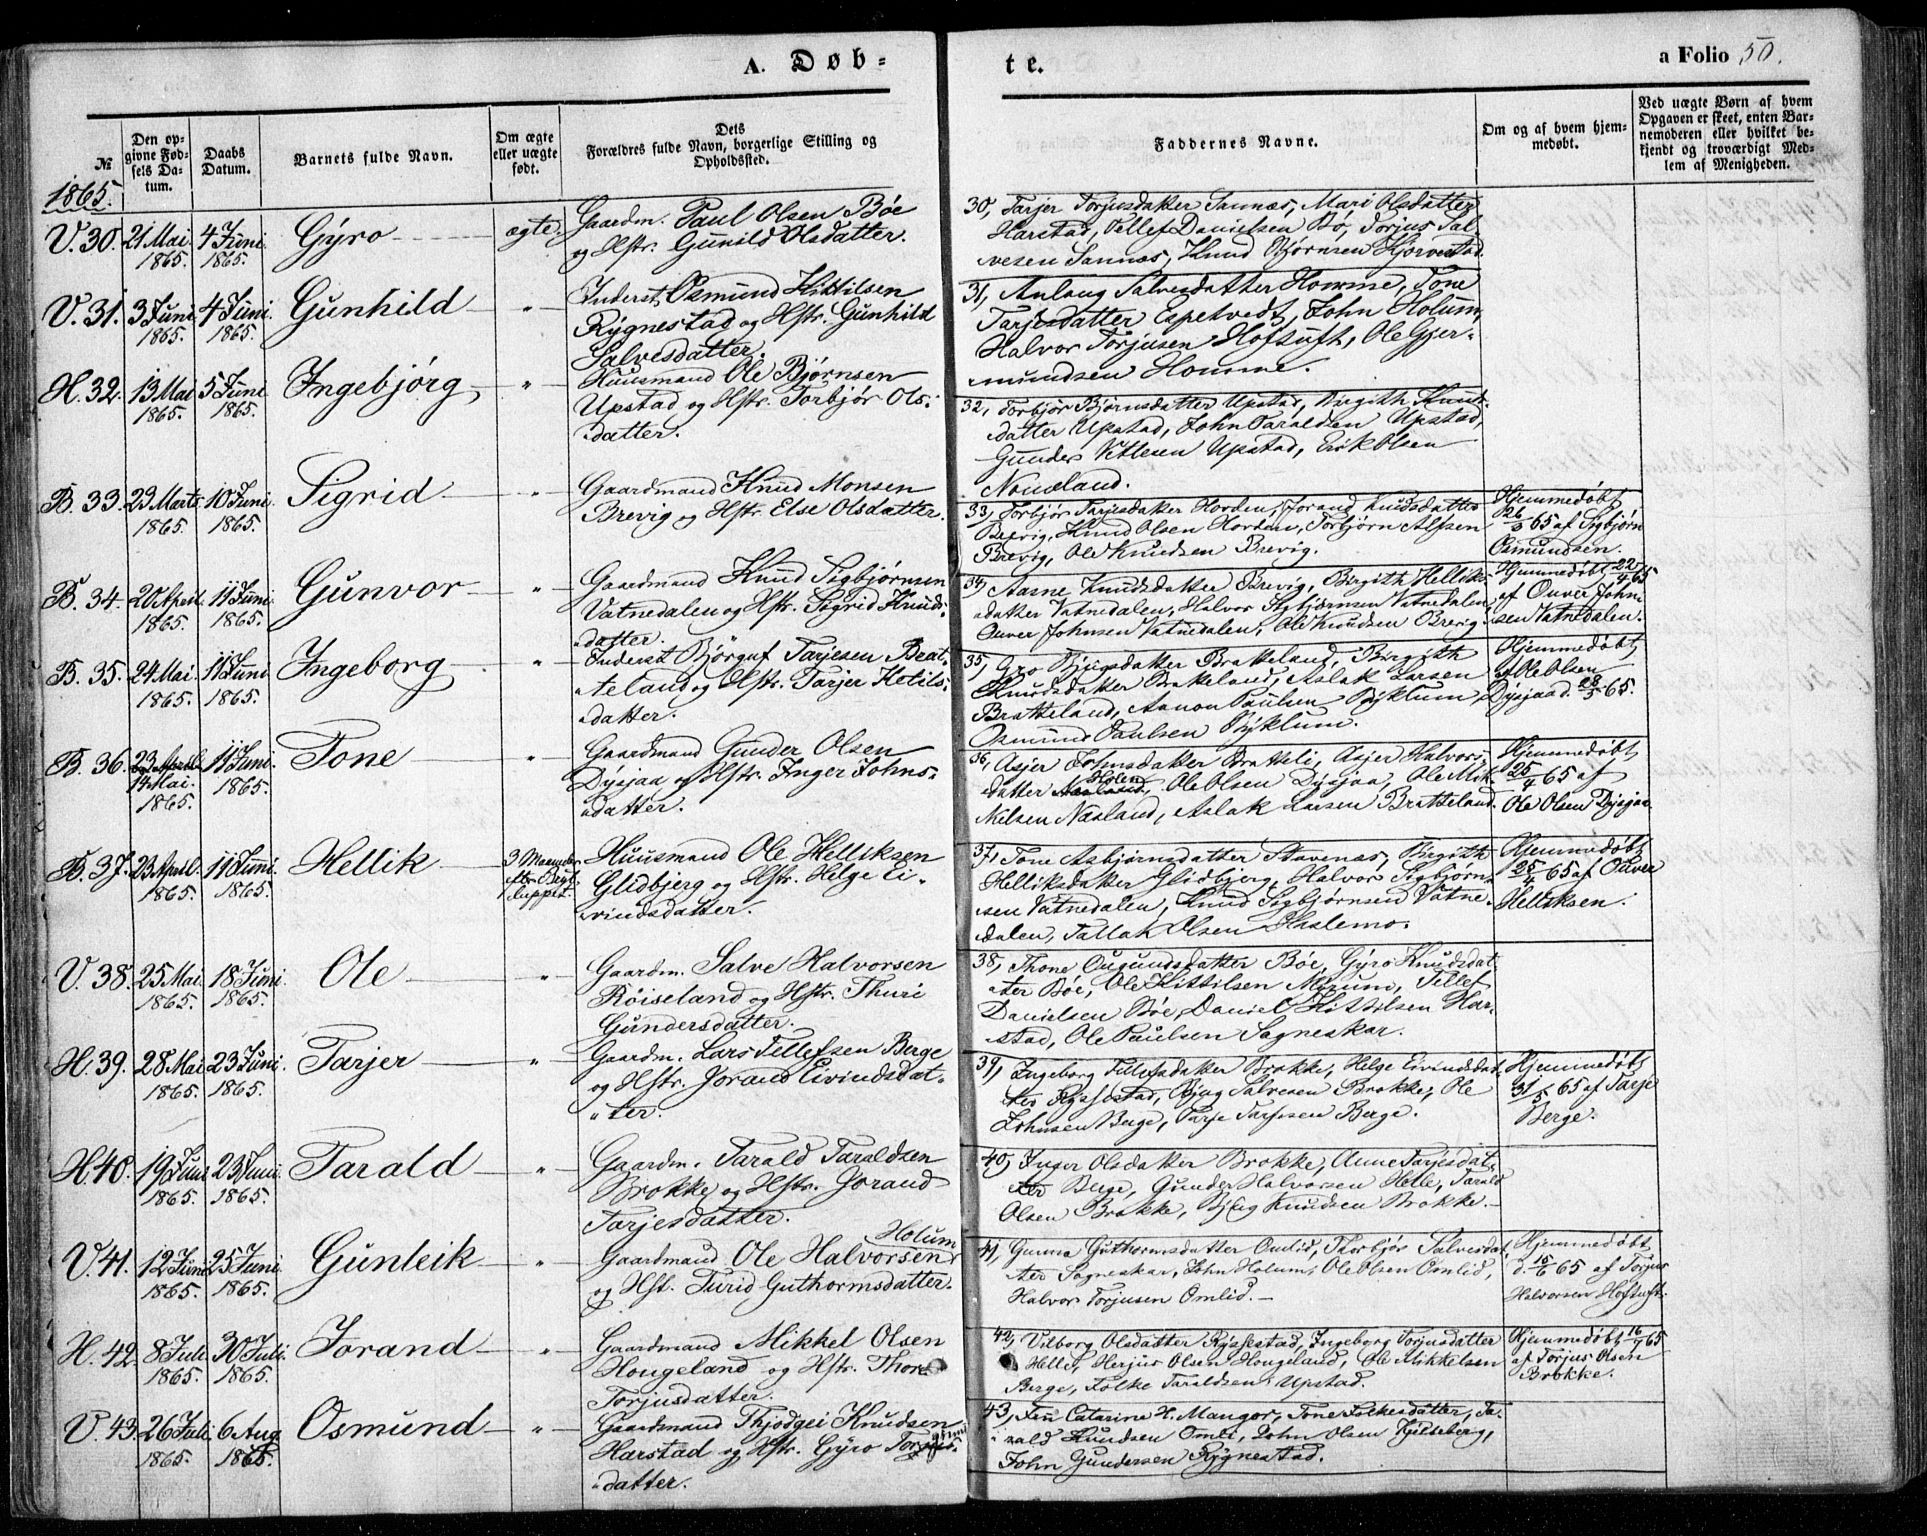 A. Døb=
te.
a Folio 50.
№
Den op-
givne Fød-
sels Da-
tum.
Daabs
Datum.
Barnets fulde Navn.
Om ægte
eller uægte
født.
Dets
Forældres fulde Navn, borgerlige Stilling og
Opholdssted.
Faddernes Navne.
Om og af hvem hjem-
medøbt.
Ved uægte Børn af hvem
Opgaven er skeet, enten Bar-
nemoderen eller hvilket be-
kjendt og troværdigt Med-
lem af Menigheden.
1865.
V. 30. 21 Mai 1865. 4 Juni 1865. Gyro ægte.
Gaardm. Paul Olsen Bøe
og Hstr. Gunild Olsdatter.
30, Tarjer Torjusdatter Sannæs, Mari Olsdatter
Harstad, Tellef Danielsen Bø, Torjus Sal-
vesen Sannæs, Knud Bjørnsen Kjorvestad.
V. 31. 3 Juni 1865. 4 Juni 1865. Gunhild "
Inderst, Osmund Kittilsen
Rygnestad og Hstr. Gunhild
Salvesdatter.
31, Anlaug Salvesdatter Homme, Tone
Tarjesdatter Espetvedt, John Holum,
Halvor Torjusen Hoftuft, Ole Gjer-
mundsen Homme.
H. 32. 13 Mai 1865. 5 Juni 1865. Ingebjørg "
Huusmand Ole Bjørnsen
Upstad og Hstr. Torbjør Ols-
datter.
32, Torbjør Bjørnsdatter Upstad, Birgith Knuds-
datter Upstad, John Taraldsen Upstad,
Gunder Vetlesen Upstad, Eirik Olsen
Nomeland.
B. 33. 23 Marts 1865. 10 Juni 1865. Sigrid "
Gaardmand Knud Monsen
Brevig og Hstr. Else Olsdatter.
33, Torbjør Tarjesdatter Horden, Jorand Knudsdatter
Brevig, Knud Olsen Horden, Torbjørn Alfsen
Brevig, Ole Knudsen Brevig.
Hjemmedøbt
26/3 65 af Sigbjørn
Osmundsen.
B. 34. 20 April 1865. 11 Juni 1865. Gunvor "
Gaardmand Knud Sigbjørnsen
Vatnedalen og Hstr. Sigrid Knuds-
datter.
34, Aasne Knudsdatter Brevig, Birgith Helliks-
datter Vatnedalen, Halvor Sigbjørnsen Vatnedalen,
Ouver Johnsen Vatnedalen, Ole Knudsen Brevig.
Hjemmedøbt 22/4 65
af Ouver John-
sen Vatnedalen.
B. 35. 24 Mai 1865. 11 Juni 1865. Ingeborg "
Inderst Bjørguf Tarjesen Brat-
teland og Hstr. Tarjer Ketils-
datter.
35, Gro Bjugsdatter Bratteland, Birgith
Knudsdatter Brateland, Aslak Larsen
Bratteland, Aanon Paulsen Byklum,
Osmund Paulsen Byklum.
Hjemmedøbt
af Ole Olsen
Dysjaa d. 28/5 65.
B. 36. 23 April 14 Mai 1865. 11 Juni 1865. Tone "
Gaardmand Gunder Olsen
Dysjaa og Hstr. Inger Johns-
datter.
36, Asjer Johnsdatter Bratteli, Asjer Halvors-
datter Holen, Ole Olsen Dysjaa, Ole Mik-
kelsen Næsland, Aslak Larsen Bratteland.
Hjemmedøbt
25/4 65 af
Ole Olsen Dysjaa
B. 37. 23 April 1865. 11 Juni 1865. Hellik
3 Maaneder
efter
Huusmand Ole Helliksen
Glidbjerg og Hstr. Helge Ei-
vindsdatter.
37, Tone Asbjørnsdatter Stavenæs, Birgith
Helliksdatter Glidbjerg, Halvor Sigbjørn-
sen Vatnedalen, Knud Sigbjørnsen Vatne-
dalen, Tallak Olsen Haslemo.
Hjemmedøbt
25/4 65 af Ouver
Helliksen.
V. 38. 25 Mai 1865. 18 Juni 1865. Ole "
Gaardm. Salve Halvorsen
Røiseland og Hstr. Thuri
Gundersdatter.
38, Thone Ougundsdatter Bøe, Gyro Knudsdat-
ter Bøe, Ole Kittilsen Myrum, Tellef
Danielsen Bøe, Daniel Kittilsen Har-
stad, Ole Paulsen Sagneskar.
H. 39. 28 Mai 1865. 23 Juni 1865. Tarjer "
Gaardm. Lars Tellefsen Berge
og Hstr. Jorand Eivindsdat-
ter.
39, Ingeborg Tellefsdatter Brokke, Helge Eivindsdat-
ter Rysjestad, Bjug Salvesen Brokke, Ole
Johnsen Berge, Tarje Tarjesen Berge.
Hjemmedøbt
31/5 65 af Tarje
Berge.
H. 40. 19 Juni 1865. 23 Juni 1865. Tarald "
Gaardm. Tarald Taraldsen
Brokke og Hstr. Jorand
Tarjesdatter.
40, Inger Olsdatter Brokke, Anne Tarjesdat-
ter Berge, Gunder Halvorsen Helle, Tarald
Olsen Brokke, Bjug Knudsen Brokke.
V. 41. 12 Juni 1865. 25 Juni 1865. Gunleik "
Gaardmand Ole Halvorsen Holum
og Hst. Turid Guthormsdatter.
41, Gunna Guthormsdatter Omlid, Thorbjør Salvesdat-
ter Sagneskar, John Holum, Ole Olsen Omlid,
Halvor Torjusen Omlid.
Hjemmedøbt
d. 15/6 65 af Torjus
Halvorsen Hoftuft.
H. 42. 8 Juli 1865. 30 Juli 1865. Jorand "
Gaardmand Mikkel Olsen
Hougeland og Hstr. Thone
Torjusdatter.
42, Vilborg Olsdatter Rysjestad, Ingeborg Torjusdatter
Helle, Herjus Olsen Hougeland, Ole Mikkelsen
Berge, Folke Taraldsen Upstad.
Hjemmedøbt 16/7 65
af Torjus Olsen
Brokke.
V. 43. 26 Juli 1865. 6 Aug 1865. Osmund "
Gaardmand Thjodgei Knudsen
Harstad og Hstr. Gyro
datter.
43, Catarine H. Mangor, Tone Folkesdatter, Ta-
rald Knudsen Omli, John Olsen Kjelleberg,
John Gundersen Rygnestad.